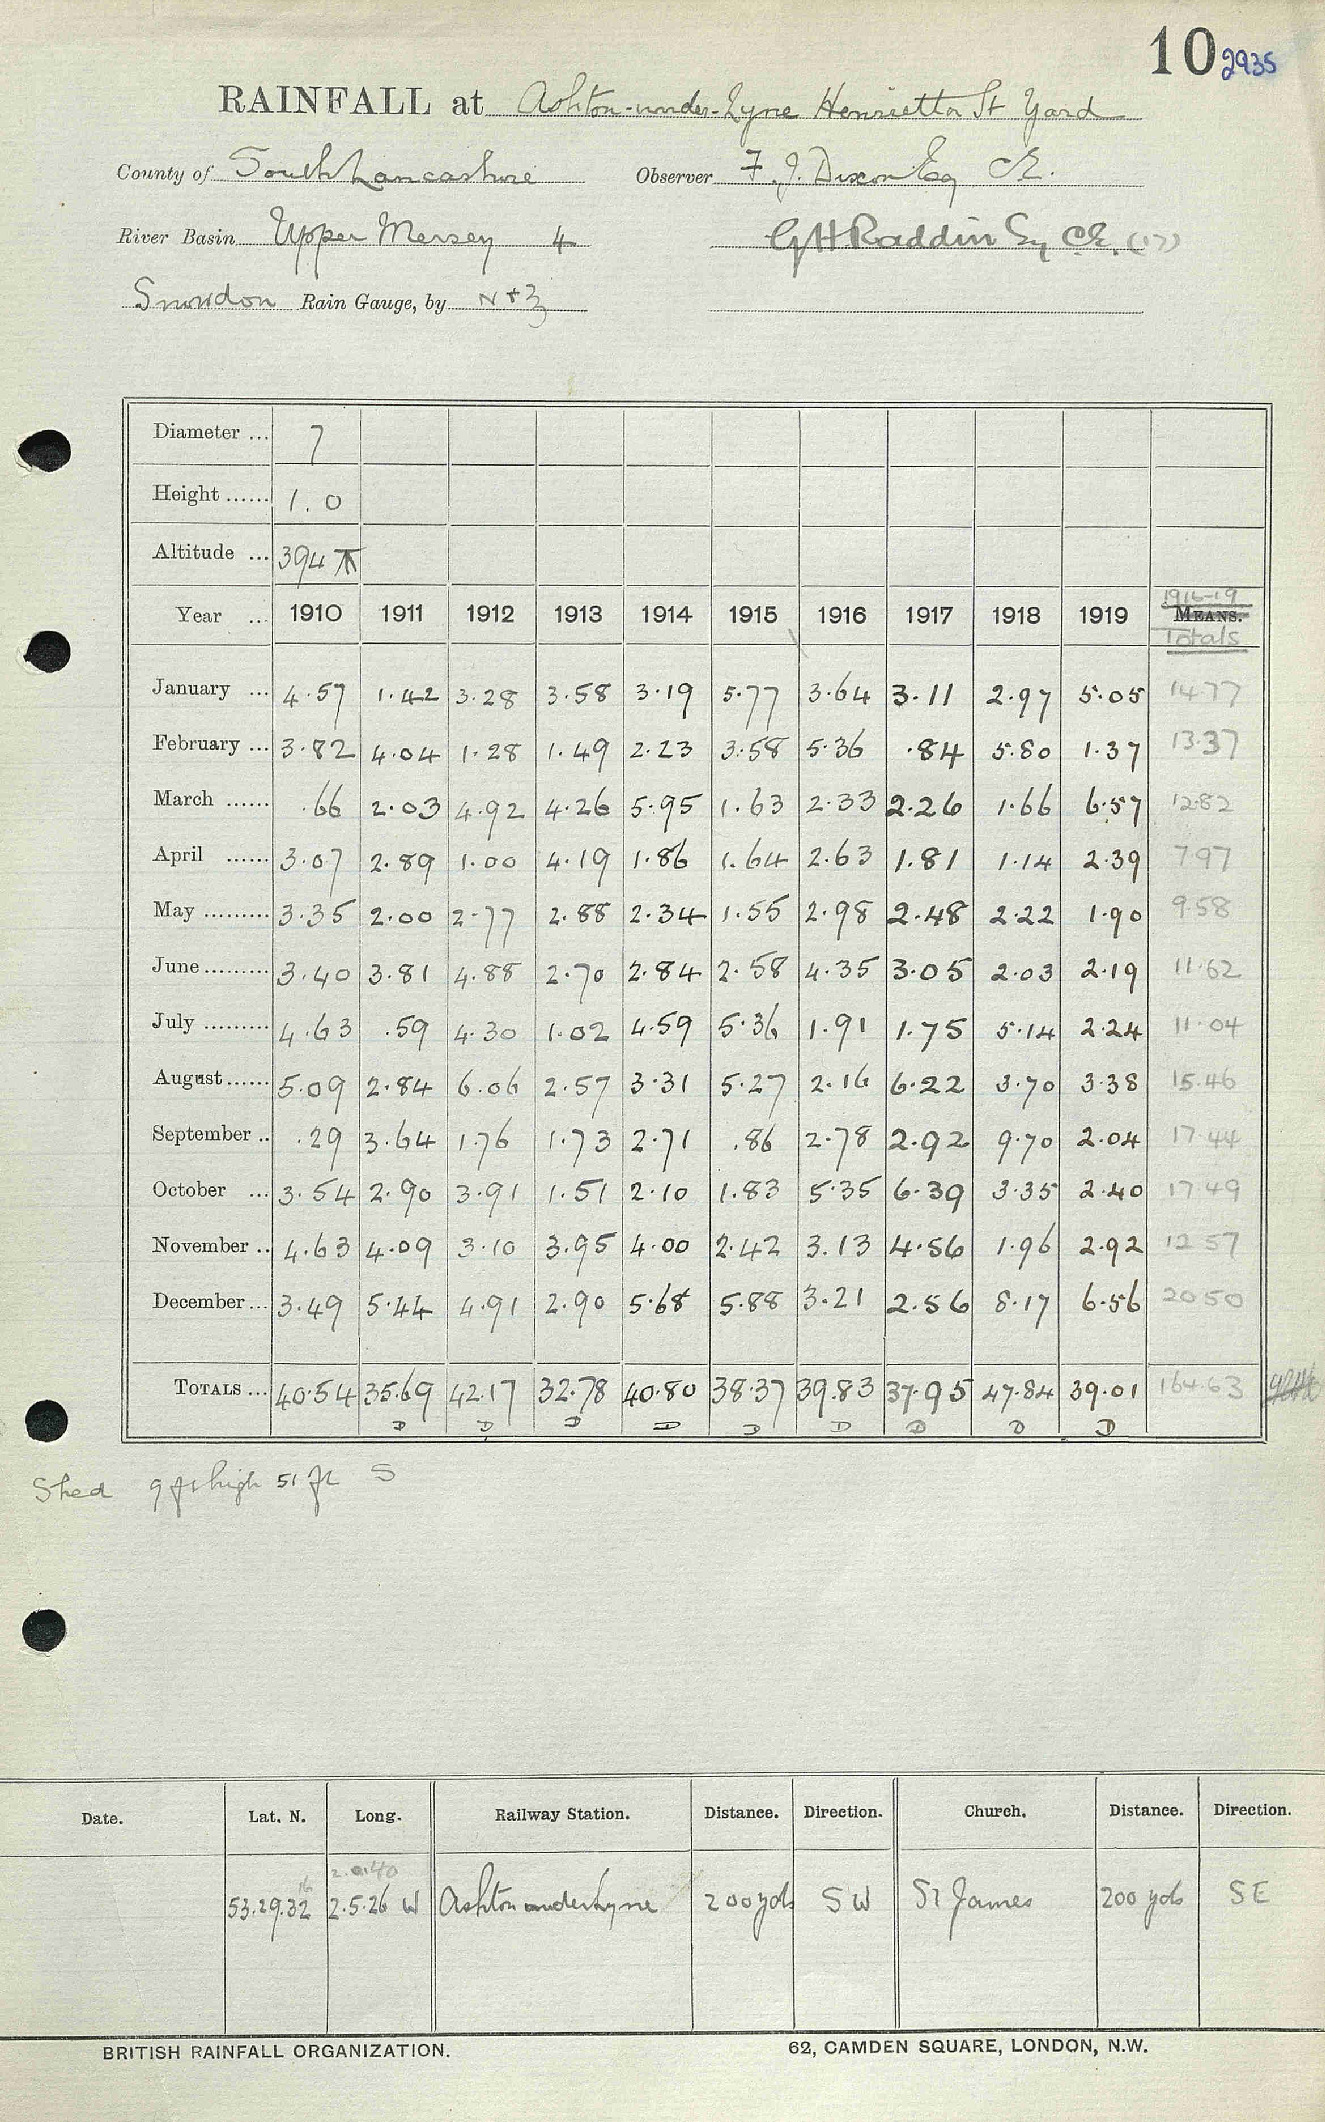 10 2935
RAINFALL at Ashton-under-Lyne Henrietta St Yard
County of South Lancashire Observer F. J. Dixon Esq CE.
River Basin Upper Mersey 4 G H Raddin Esq CE. (17)
Snowdon Rain Gauge, by N + Z
Diameter ... 7
Height ...... 1.0
Altitude ... 394
1916-19
Year ... 1910 1911 1912 1913 1914 1915 1916 1917 1918 1919 MEANS.
Totals
January ... 4.57 1.42 3.28 3.58 3.19 5.77 3.64 3.11 2.97 5.05 14.77
February ... 3.82 4.04 1.28 1.49 2.23 3.58 5.36 .84 5.80 1.37 13.37
March ...... .66 2.03 4.92 4.26 5.95 1.63 2.33 2.26 1.66 6.57 12.82
April ...... 3.07 2.89 1.00 4.19 1.86 1.64 2.63 1.81 1.14 2.39 7.97
May ......... 3.35 2.00 2.77 2.88 2.34 1.55 2.98 2.48 2.22 1.90 9.58
June ......... 3.40 3.81 4.88 2.70 2.84 2.58 4.35 3.05 2.03 2.19 11.62
July ......... 4.63 .59 4.30 1.02 4.59 5.36 1.91 1.75 5.14 2.24 11.04
August ...... 5.09 2.84 6.06 2.57 3.31 5.27 2.16 6.22 3.70 3.38 15.46
September .. .29 3.64 1.76 1.73 2.71 .86 2.78 2.92 9.70 2.04 17.44
October ... 3.54 2.90 3.91 1.51 2.10 1.83 5.35 6.39 3.35 2.40 17.49
November .. 4.63 4.09 3.10 3.95 4.00 2.42 3.13 4.56 1.96 2.92 12.57
December ... 3.49 5.44 4.91 2.90 5.68 5.88 3.21 2.56 8.17 6.56 20.50
TOTALS ... 40.54 35.69 42.17 32.78 40.80 38.37 39.83 37.95 47.84 39.01 164.63
D D D D D D D D D
Shed 9 ft high 51 ft S
Date. Lat. N. Long. Railway Station. Distance. Direction. Church. Distance. Direction.
16 2.0.40
53.29.32 2.5.26 W Ashton under Lyne 200 yds SW St James 200 yds SE
BRITISH RAINFALL ORGANIZATION. 62, CAMDEN SQUARE, LONDON, N.W.